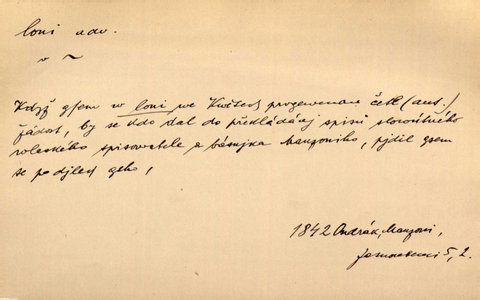 loni adv.
v ~
Když gsem w loni we Kwětech progewenau četl (aut.)
žádost, by se kdo dal do překládánj spisů slowútného
wlaského spisowatele a básnjka Manzoniho, pjdil gsem
se po djlech geho,
1842 Ondrák, Manzoni,
5, 2.